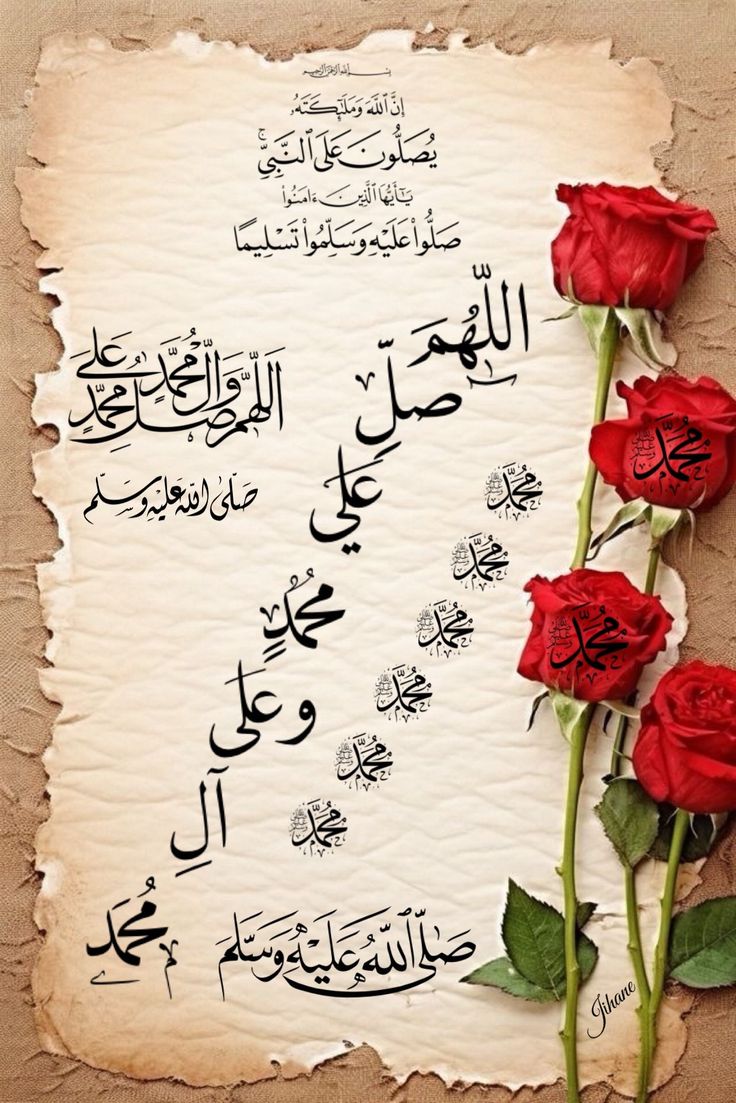 بسم الله الرحمن الرحيم
إِنَّ ٱللَّهَ وَمَلَٰٓئِكَتَهُۥ
يُصَلُّونَ عَلَى ٱلنَّبِىِّ ۚ
يَٰٓأَيُّهَا ٱلَّذِينَ ءَامَنُوا۟
صَلُّوا۟ عَلَيْهِ وَسَلِّمُوا۟ تَسْلِيمًا
اللَّهُمَ
صلِّ
علي
محمُدٍ
وعلى
آلِ
محُمَد
اللَّهُمَّ صَلِّ عَلَى مُحَمَّدٍ وَآلِ مُحَمَّد
صَلّىٰ اللّه عَلَيْهِ وَسَلّم
مُحَمَّد ﷺ
مُحَمَّد ﷺ
مُحَمَّد ﷺ
مُحَمَّد ﷺ
مُحَمَّد ﷺ
مُحَمَّد ﷺ
مُحَمَّد ﷺ
مُحَمَّد ﷺ
صَلّىٰ ٱللَّهُ عَلَيْهِ وَسَلَّمَ
Jihane